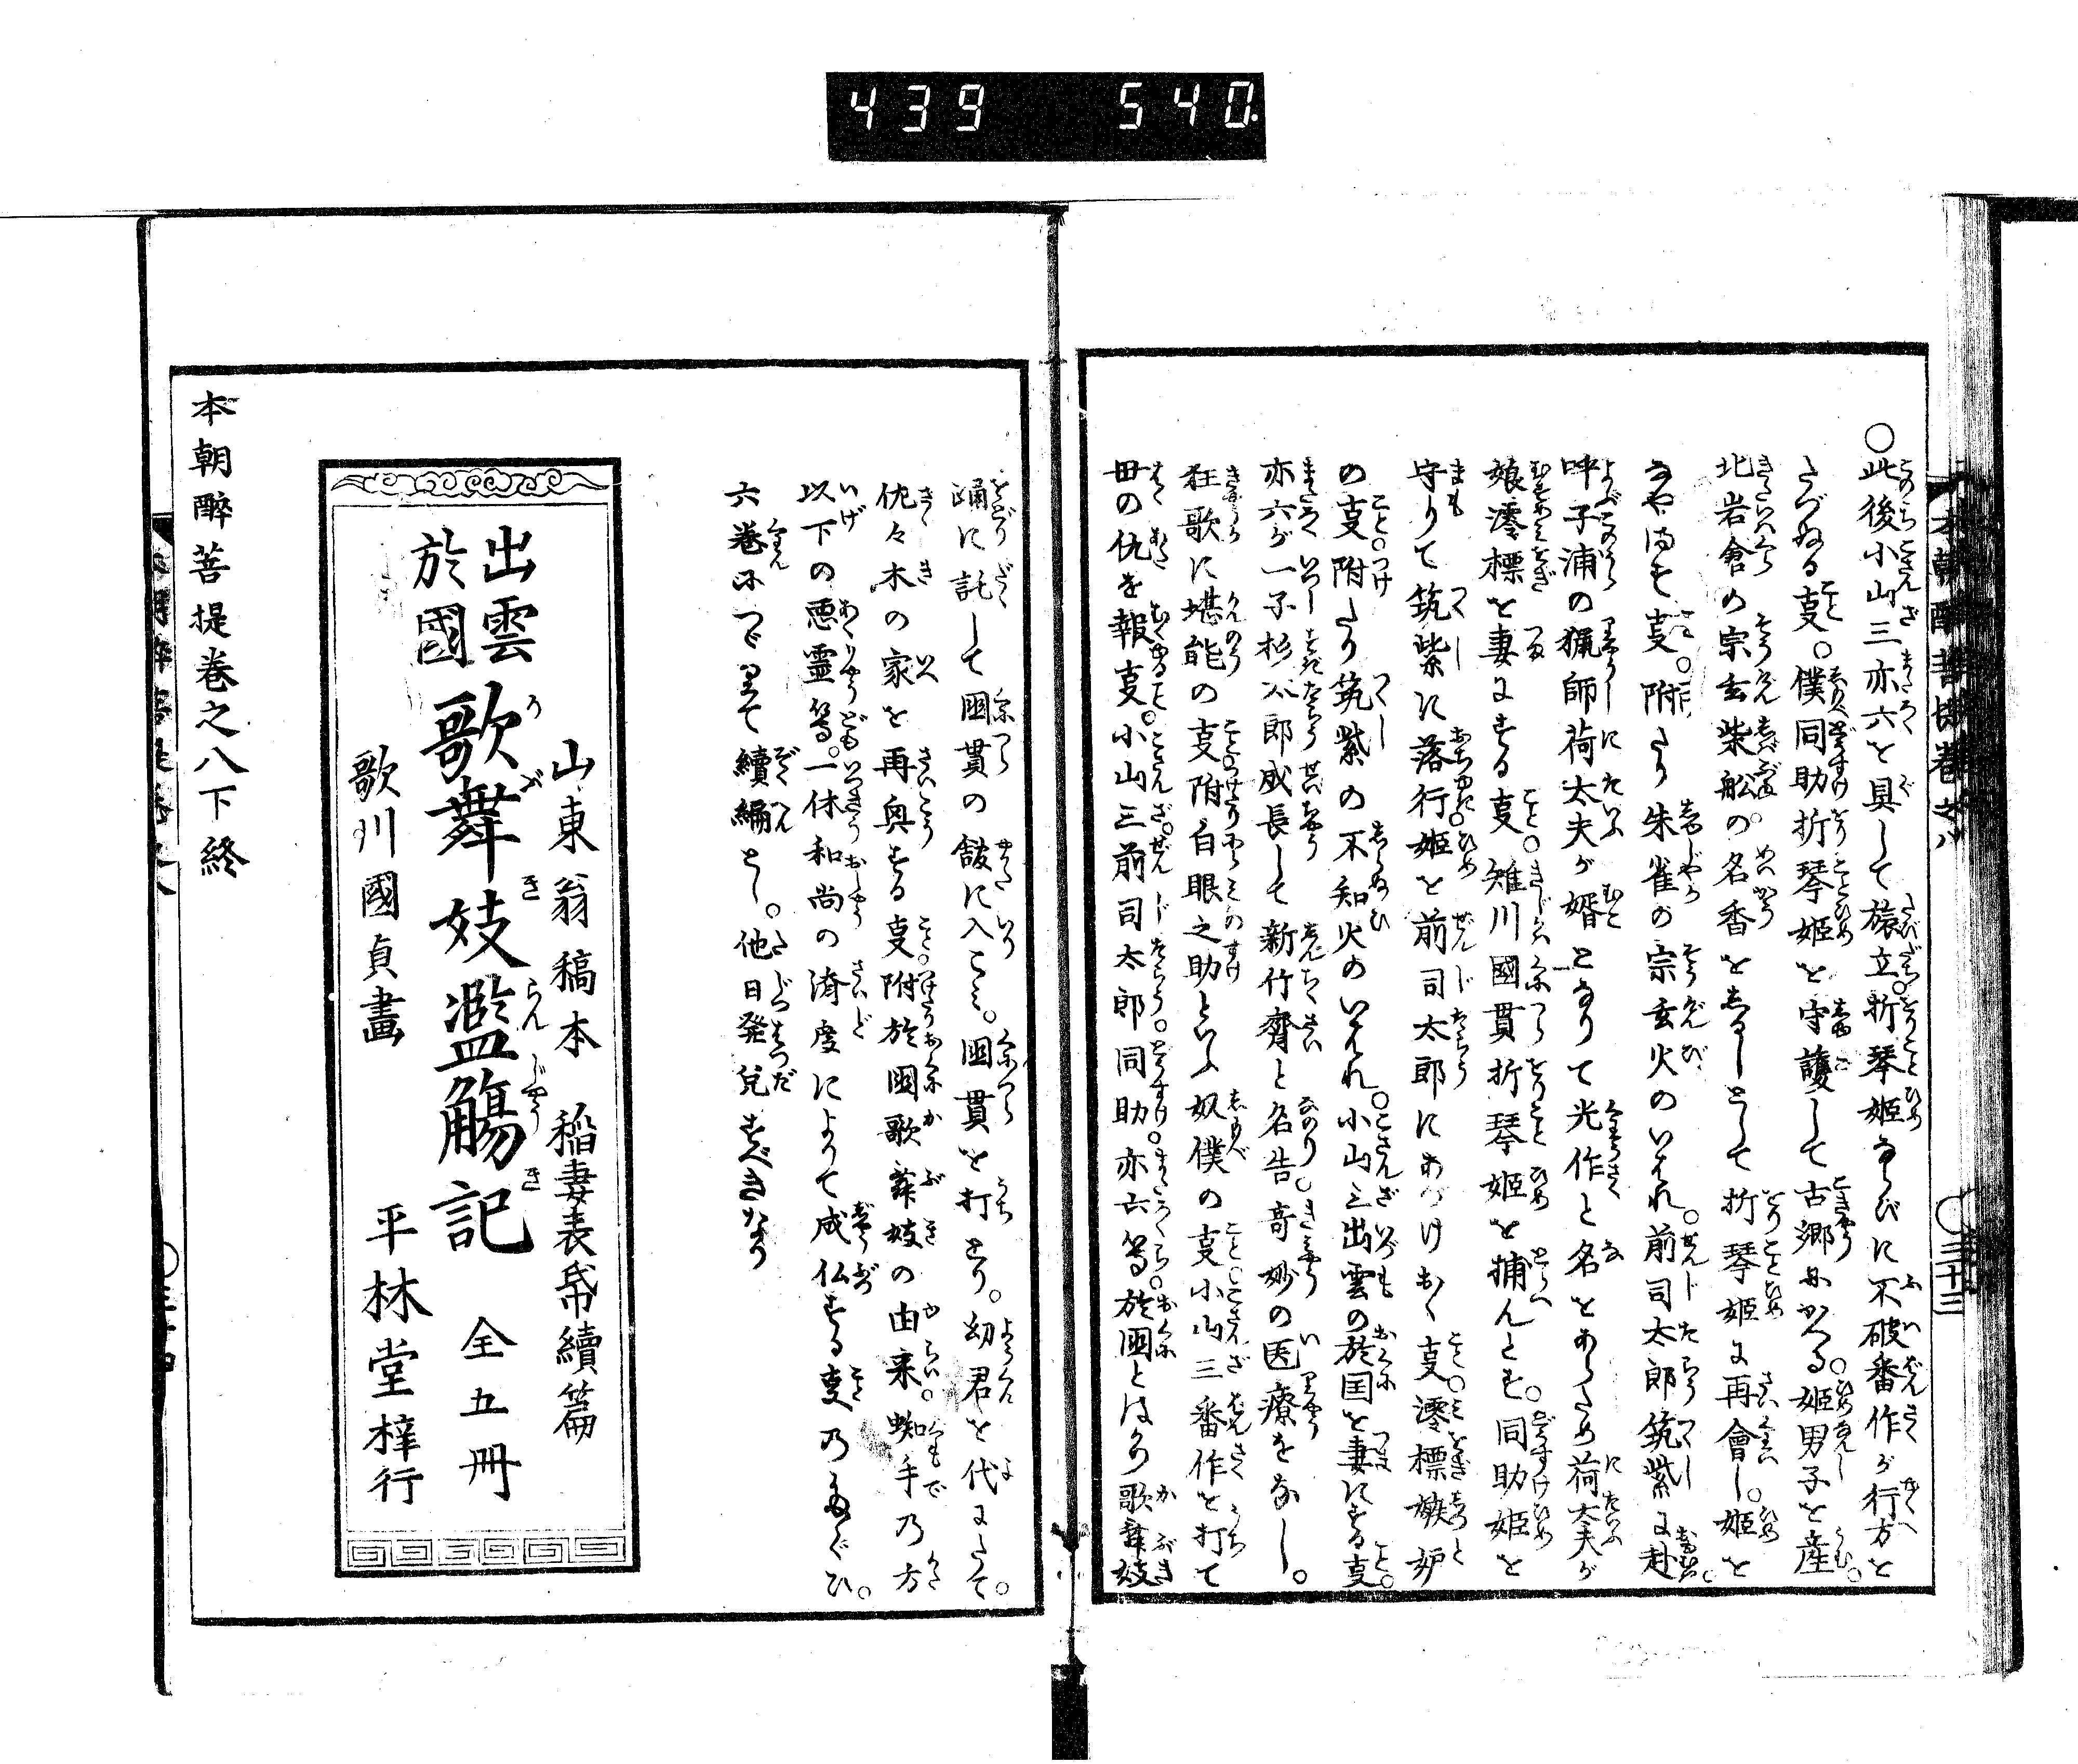 439 540.
○此後小山三亦六と具して旅立。折琴姫ならびに不破番作が行方と
たづぬる㕝。僕同助折琴姫を守護して古郷にかへる。姫男子を産。
北岩倉の宗玄柴舩の名香をしるしとして折琴姫に再會し。姫を
なやます㕝。附たり朱雀の宗玄火のいはれ。前司太郎筑紫に赴。
呼子浦の猟師荷太夫が婿となりて光作と名をあらため荷太夫が
娘澪標を妻にする㕝。雉川國貫折琴姫を捕んとす。同助姫を
守りて筑紫に落行。姫を前司太郎にあづけおく㕝。澪標嫉妒
の㕝。附たり筑紫の不知火のいはれ。小山三出雲の於国を妻にする㕝。
亦六が一子杉太郎成長して新竹齋と名告。奇妙の医療をなし。
狂歌に堪能の㕝附白眼之助といふ奴僕の㕝小山三番作を打て
毋の仇を報㕝。小山三前司太郎同助亦六等於國とはかり歌舞妓
踊に託して國貫の舘に入こみ。國貫を打とり。幼君を代にたて。
佐々木の家を再興する㕝附於國歌舞妓の由来。蜘手乃方
以下の悪霊等。一休和尚の済度によりて成仏する㕝乃たぐひ。
六巻につゞりて續編とし。他日発兌すべきなり
山東翁稿本 稲妻表帋續篇
出雲
於國
歌舞妓濫觴記 全五冊
歌川國貞畫 平林堂梓行
本朝醉菩提巻之八下終